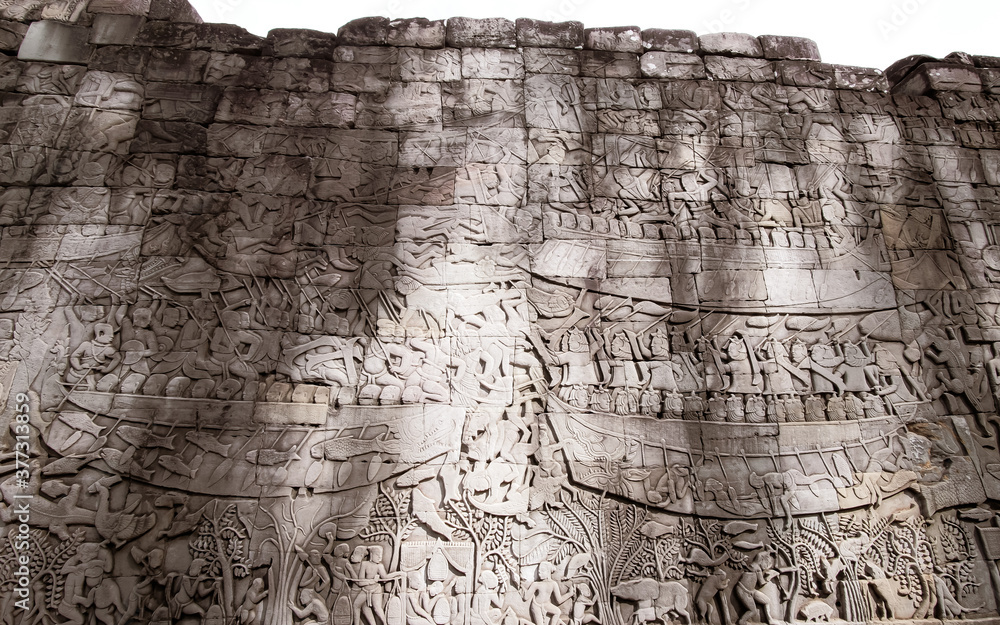 Adobe Stock | #577313859